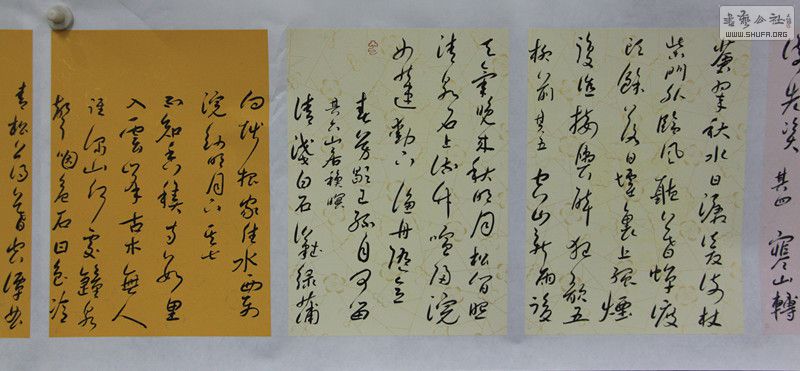 其四 寒山轉
蒼翠秋水日潺湲倚杖
柴門外臨風聽暮蟬渡
頭餘落日墟裏上孤煙
復值接輿醉狂歌五
柳前 其五 空山新雨後
天氣晚來秋明月松間照
清泉石上流竹喧歸浣
女蓮動下漁舟隨意
春芳歇王孫自可留
其六 山居秋暝
清淺白石灘綠蒲
向堪把家住水東西
浣紗明月下 其七
不知香積寺數里
入雲峰古木無人
逕深山何處鐘泉
聲咽危石日色冷
青松薄暮空潭曲
書藝公社
WWW.SHUFA.ORG